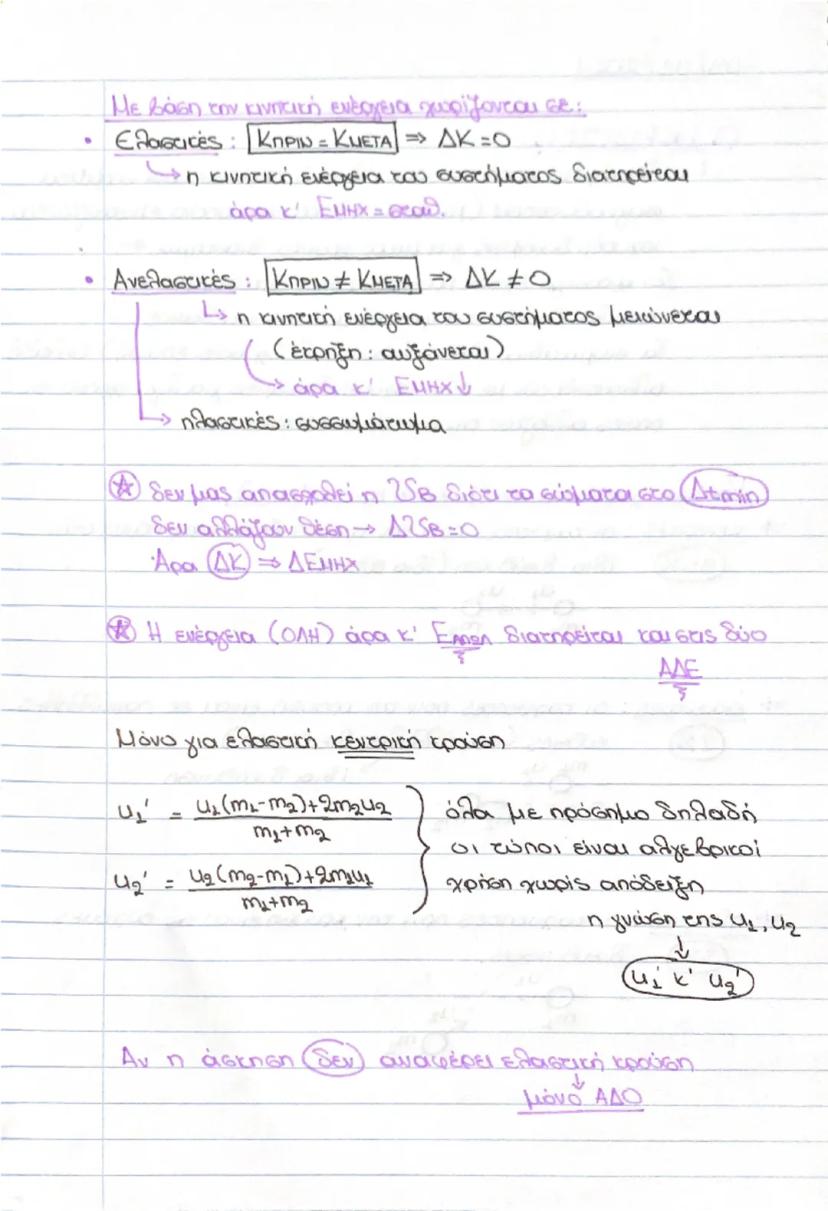 Με βάση την κινητική ενέργεια χωρίζονται σε:
• Ελαστικές: ΚΠΡΙΝ = ΚΜΕΤΑ ⇒ ΔΚ=0
↳ η κινητική ενέργεια του συστήματος διατηρείται
άρα κ' ΕΜΗΧ = σταθ.
• Ανελαστικές: ΚΠΡΙΝ ≠ ΚΜΕΤΑ ⇒ ΔΚ ≠ 0
↳ η κινητική ενέργεια του συστήματος μειώνεται
(έκρηξη: αυξάνεται)
→ άρα κ' ΕΜΗΧ↓
→ πλαστικές: συσσωμάτωμα
☆ δεν μας απασχολεί η Uβ διότι τα σώματα στο Δtmin
δεν αλλάζουν θέση → ΔUβ=0
Άρα ΔΚ ⇒ ΔΕΜΗΧ
☆ Η ενέργεια (ΟΛΗ) άρα κ' Εποπ διατηρείται και στις δύο
ΑΔΕ
Μόνο για ελαστική κεντρική κρούση
u₁' = u₁(m₁-m₂)+2m₂u₂ / m₁+m₂
u₂' = u₂(m₂-m₁)+2m₁u₁ / m₁+m₂
όλα με πρόσημο δηλαδή
οι τύποι είναι αλγεβρικοί
χρήση χωρίς απόδειξη
η γνώση της u₁, u₂
↓
u₁' κ' u₂'
Αν η άσκηση δεν αναφέρει ελαστική κρούση
↓
μόνο ΑΔΟ